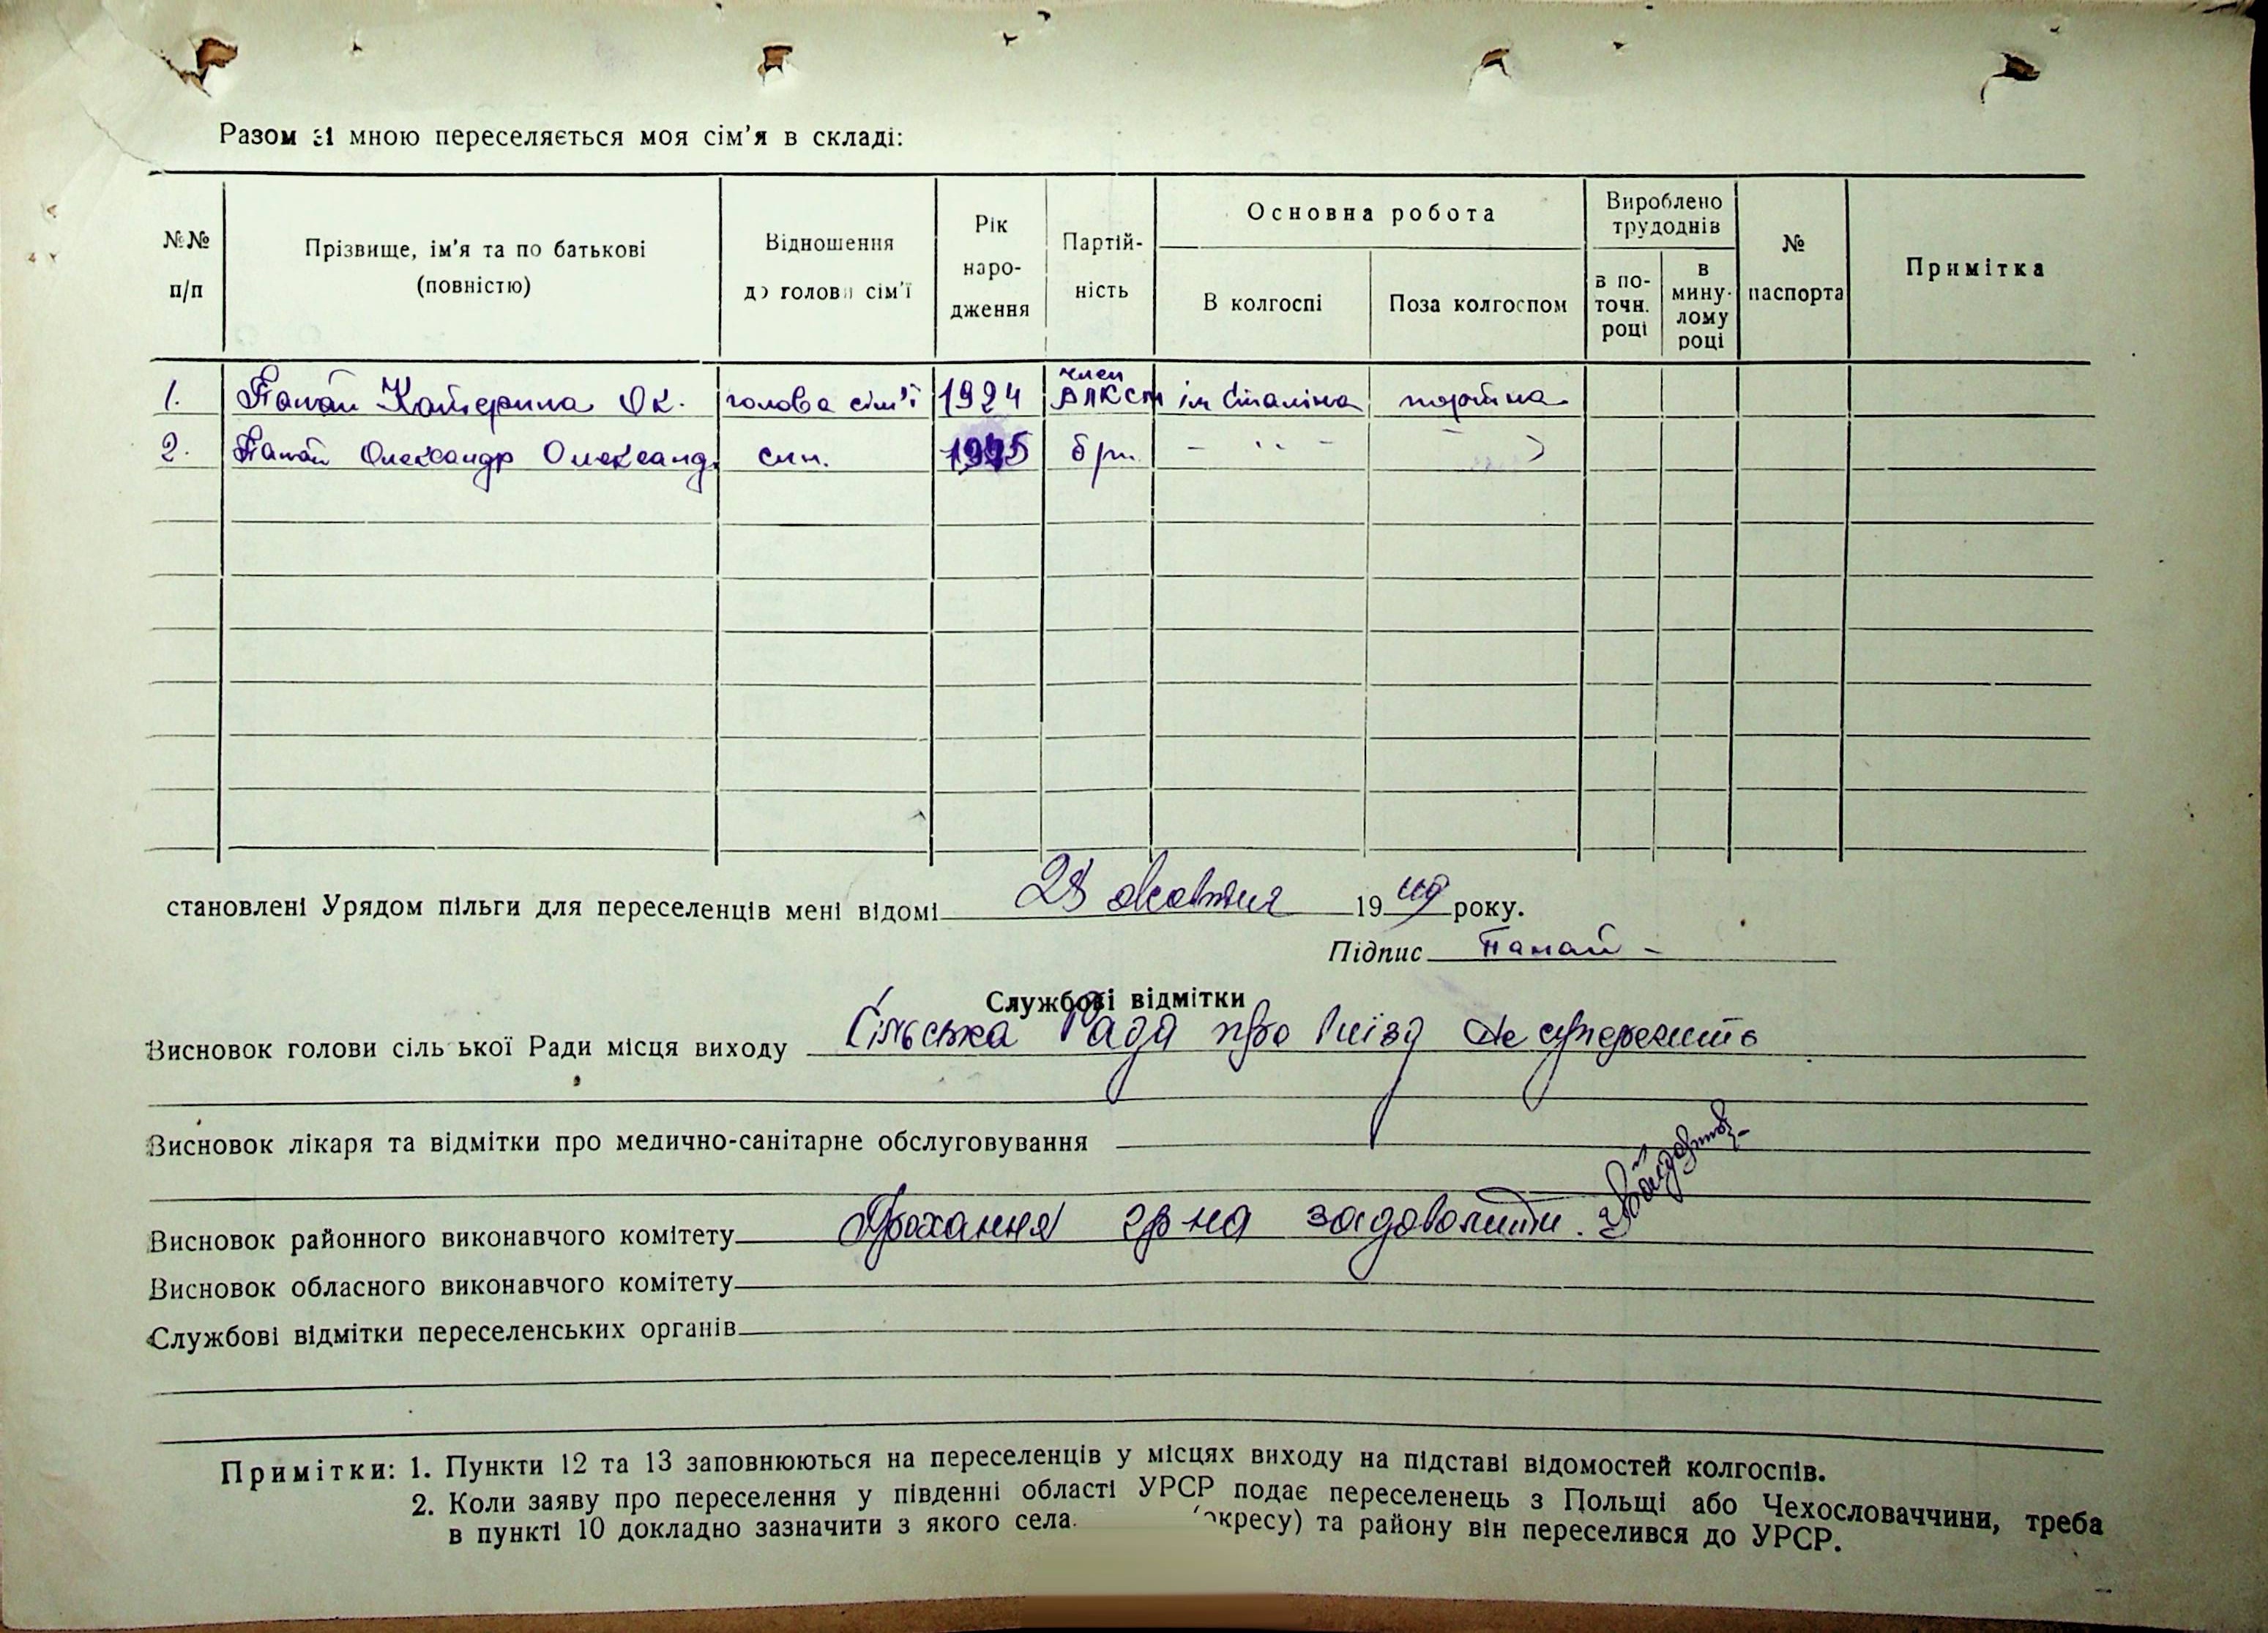 Разом зі мною переселяється моя сім'я в складі:
№№ п/п | Прізвище, ім'я та по батькові (повністю) | Відношення до голови сім'ї | Рік народження | Партійність | Основна робота | Вироблено трудоднів | № паспорта | Примітка
В колгоспі | Поза колгоспом | в поточн. році | в минулому році
1. Папай Катерина Ок. голова сім'ї 1924 член ВЛКСМ ім Сталіна
2. Папай Олександр Олександ. син. 1945 бр. - " -
становлені Урядом пільги для переселенців мені відомі 28 жовтня 1949 року.
Підпис Папай -
Службові відмітки
Висновок голови сільської Ради місця виходу Сільська Рада про виїзд не суперечить
Висновок лікаря та відмітки про медично-санітарне обслуговування
Висновок районного виконавчого комітету Прохання гр-на задоволити.
Висновок обласного виконавчого комітету
Службові відмітки переселенських органів
Примітки: 1. Пункти 12 та 13 заповнюються на переселенців у місцях виходу на підставі відомостей колгоспів.
2. Коли заяву про переселення у південні області УРСР подає переселенець з Польщі або Чехословаччини, треба
в пункті 10 докладно зазначити з якого села. окресу) та району він переселився до УРСР.